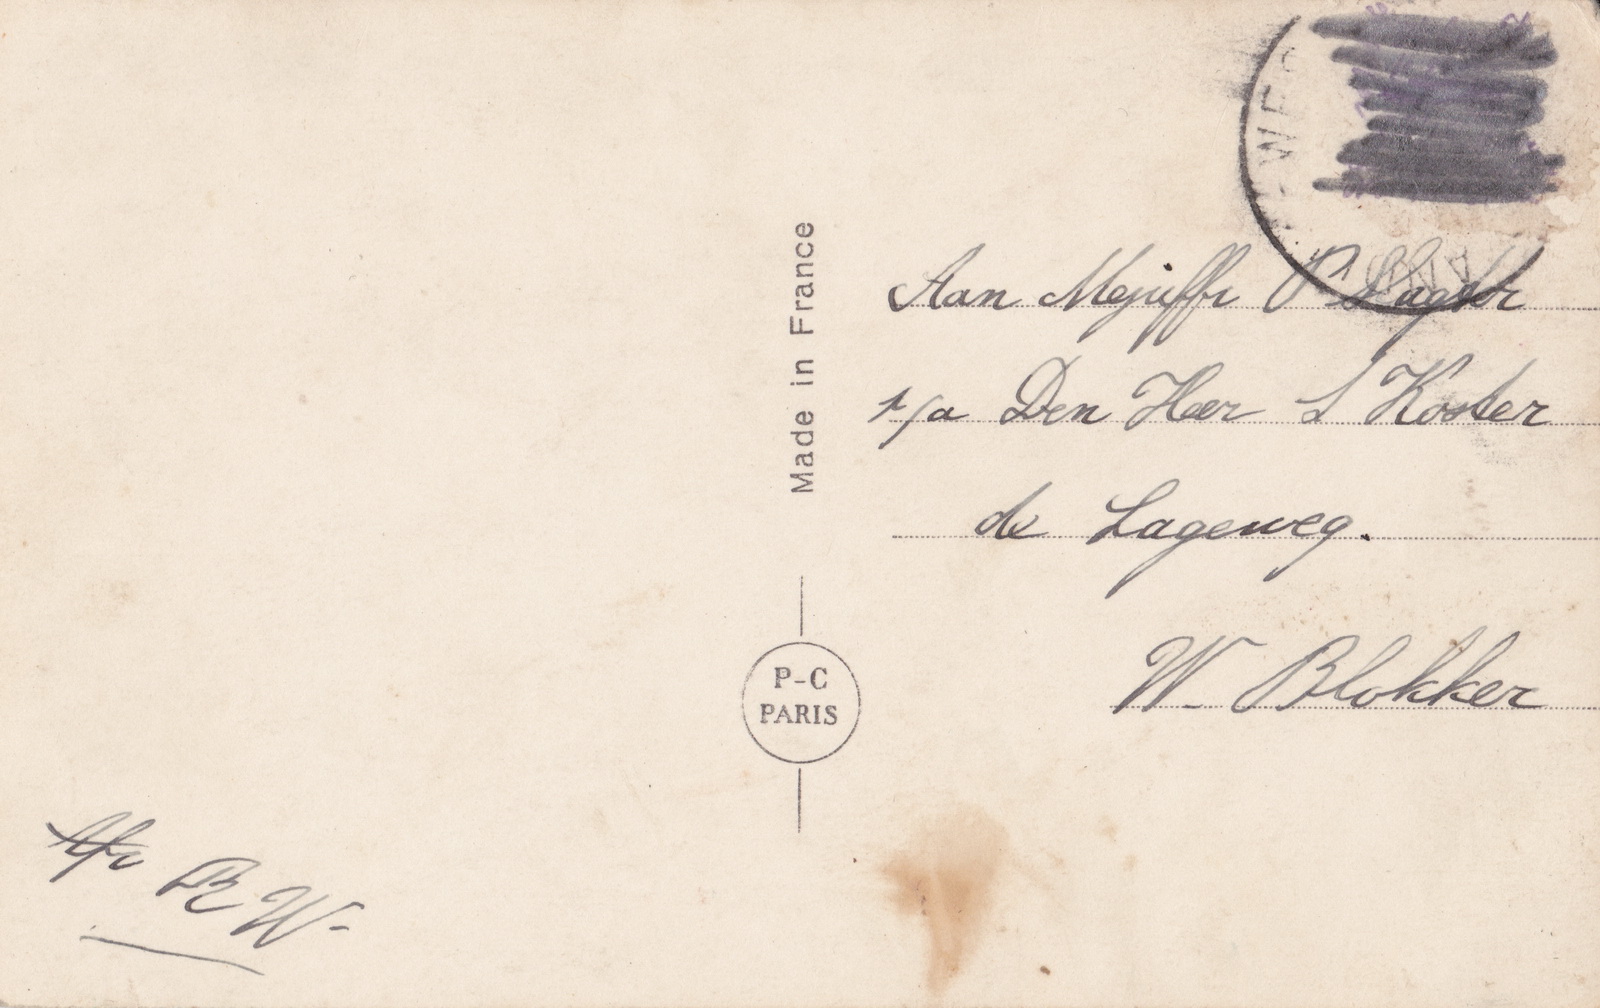 Aan Mejuffr P Slagter
p/a Den Heer S Koster
de Lageweg.
W. Blokker
Made in France
P-C
PARIS
Afz B W-